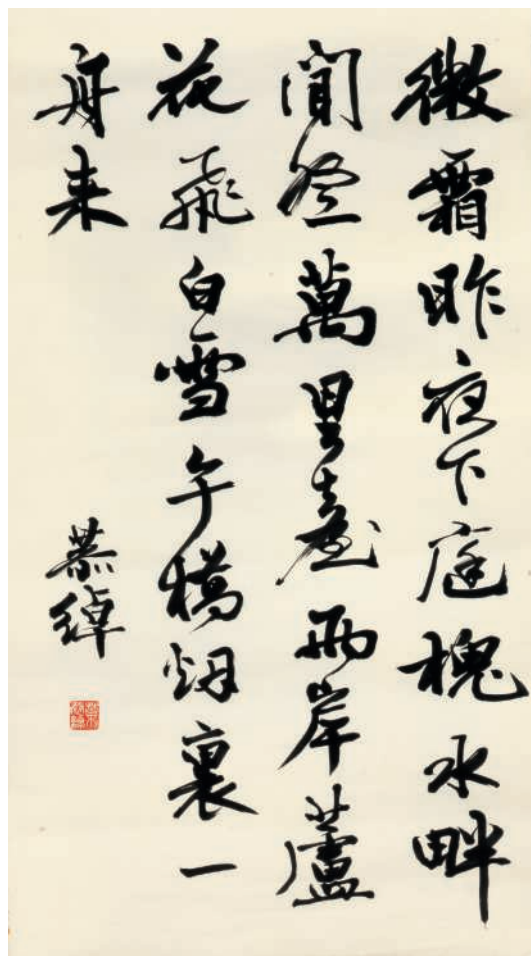 微霜昨夜下庭槐水畔
閒登萬里臺兩岸蘆
花飛白雪午橋烟裏一
舟来
慕綽